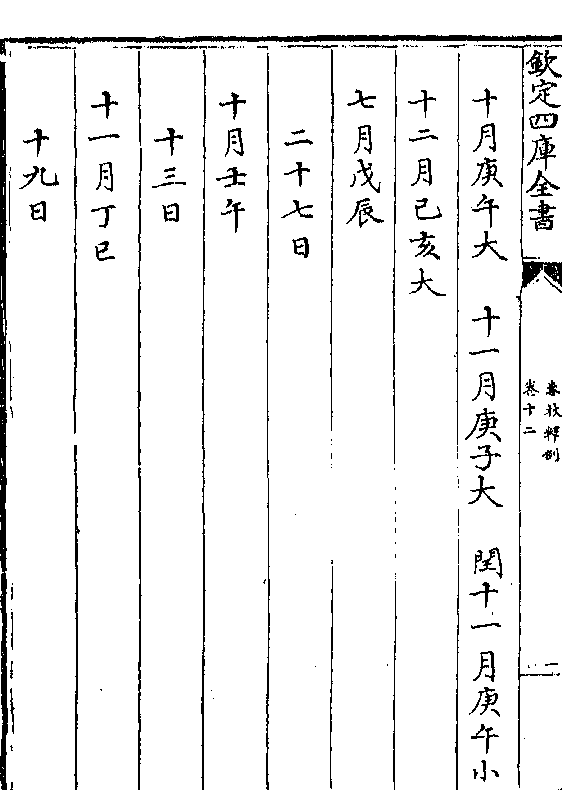 欽定四庫全書
春秋釋例
卷十二
十月庚午大 十一月庚子大 閏十一月庚午小
十二月己亥大
七月戊辰
二十七日
十月壬午
十三日
十一月丁巳
十九日